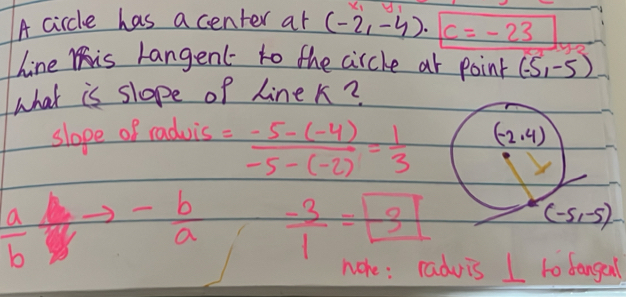 x₁ y₁
A circle has a center at (-2,-4). C = -23
Line k is tangent to the circle at point (-5,-5)
What is slope of Line K?
slope of raduis = -5-(-4) / -5-(-2) = 1/3
(-2.4)
a/b → - b/a
-3/1 = -3
(-5,-5)
note: radwis ⊥ to tangent